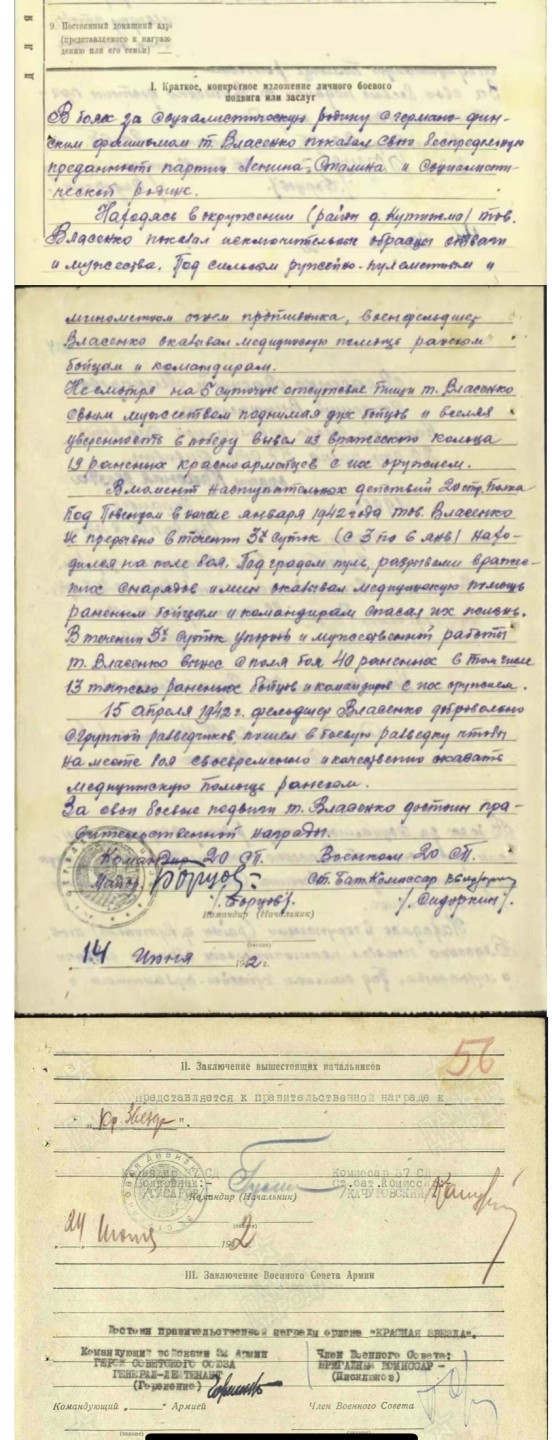 9. Постоянный домашний адрес
(представляемого к награж
дению или его семьи)
I. Краткое, конкретное изложение личного боевого
подвига или заслуг
В боях за социалистическую родину с германо-фин-
ским фашизмом т. Власенко показал свою беспредельную
преданность партии Ленина-Сталина и Социалисти-
ческой родине.
Находясь в окружении (район д. ) тов.
Власенко показал исключительные образцы отваги
и мужества. Под сильным ружейно-пулеметным и
минометным огнем противника, военфельдшер
Власенко оказывал медицинскую помощь раненым
бойцам и командирам.
Несмотря на 5 суточное отсутствие пищи т. Власенко
своим мужеством поднимая дух бойцов и вселяя
уверенность в победу вывел из вражеского кольца
19 раненых красноармейцев с их оружием.
В момент наступательных действий 20 стр. Полка
под Повенцом в начале января 1942 года тов. Власенко
не прерывно в течении 3х суток (с 3 по 6 янв) нахо-
дился на поле боя. Под градом пуль, разрывами враже-
ских снарядов и мин оказывал медицинскую помощь
раненым бойцам и командирам спасая их жизнь.
В течении 3х суток упорной и мужественной работы
т. Власенко вынес с поля боя 40 раненных в том числе
13 тяжело раненных бойцов и командиров с их оружием.
15 апреля 1942 г. фельдшер Власенко добровольно
с группой разведчиков, пошел в боевую разведку чтобы
на месте боя своевременно и качественно оказать
медицинскую помощь раненым.
За свои боевые подвиги т. Власенко достоин пра-
вительственной награды.
Командир 20 СП. Военком 20 СП.
Майор Борцов Ст. Бат. Комиссар
/Борцов/. /Сидоркин/.
Командир (Начальник)
14 Июня 1942 г.
56
II. Заключение вышестоящих начальников
представляется к правительственной награде к
"Кр. Звезде".
Командир 37 СД Комиссар 37 СД
Полковник:- Ст. бат. Комиссар
/ГУСАР /КАЧУРОВСКИЙ/
Командир (Начальник)
24 Июня 1942
III. Заключение Военного Совета Армии
Достоин правительственной награды ордена "КРАСНАЯ ЗВЕЗДА".
Командующий войсками 32 Армии Член Военного Совета:
ГЕРОЙ СОВЕТСКОГО СОЮЗА БРИГАДНЫЙ КОМИССАР -
ГЕНЕРАЛ-ЛЕЙТЕНАНТ
(Гореленко)
Командующий Армией Член Военного Совета